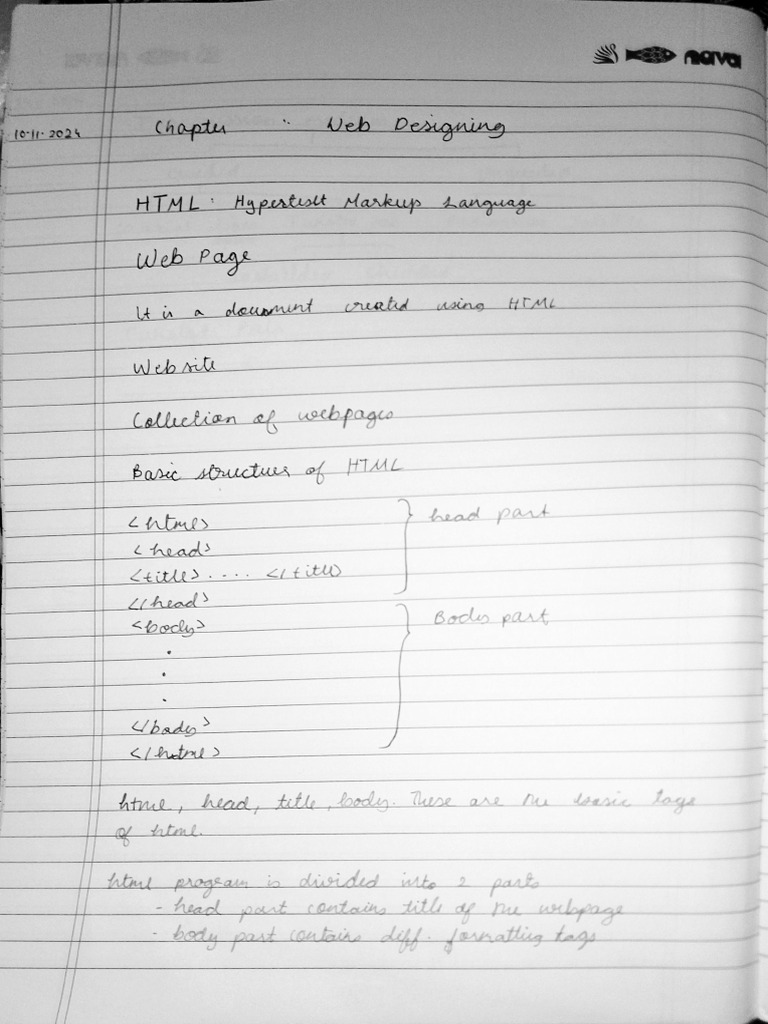 nava
10-11-2024 Chapter : Web Designing
HTML : Hypertext Markup Language
Web Page
It is a document created using HTML
Web site
Collection of webpages
Basic structure of HTML
<html> head part
<head>
<title> .... </title>
</head>
<body> Body part
.
.
.
</body>
</html>
html, head, title, body. These are the basic tags
of html.
html program is divided into 2 parts
- head part contains title of the webpage
- body part contains diff. formatting tags